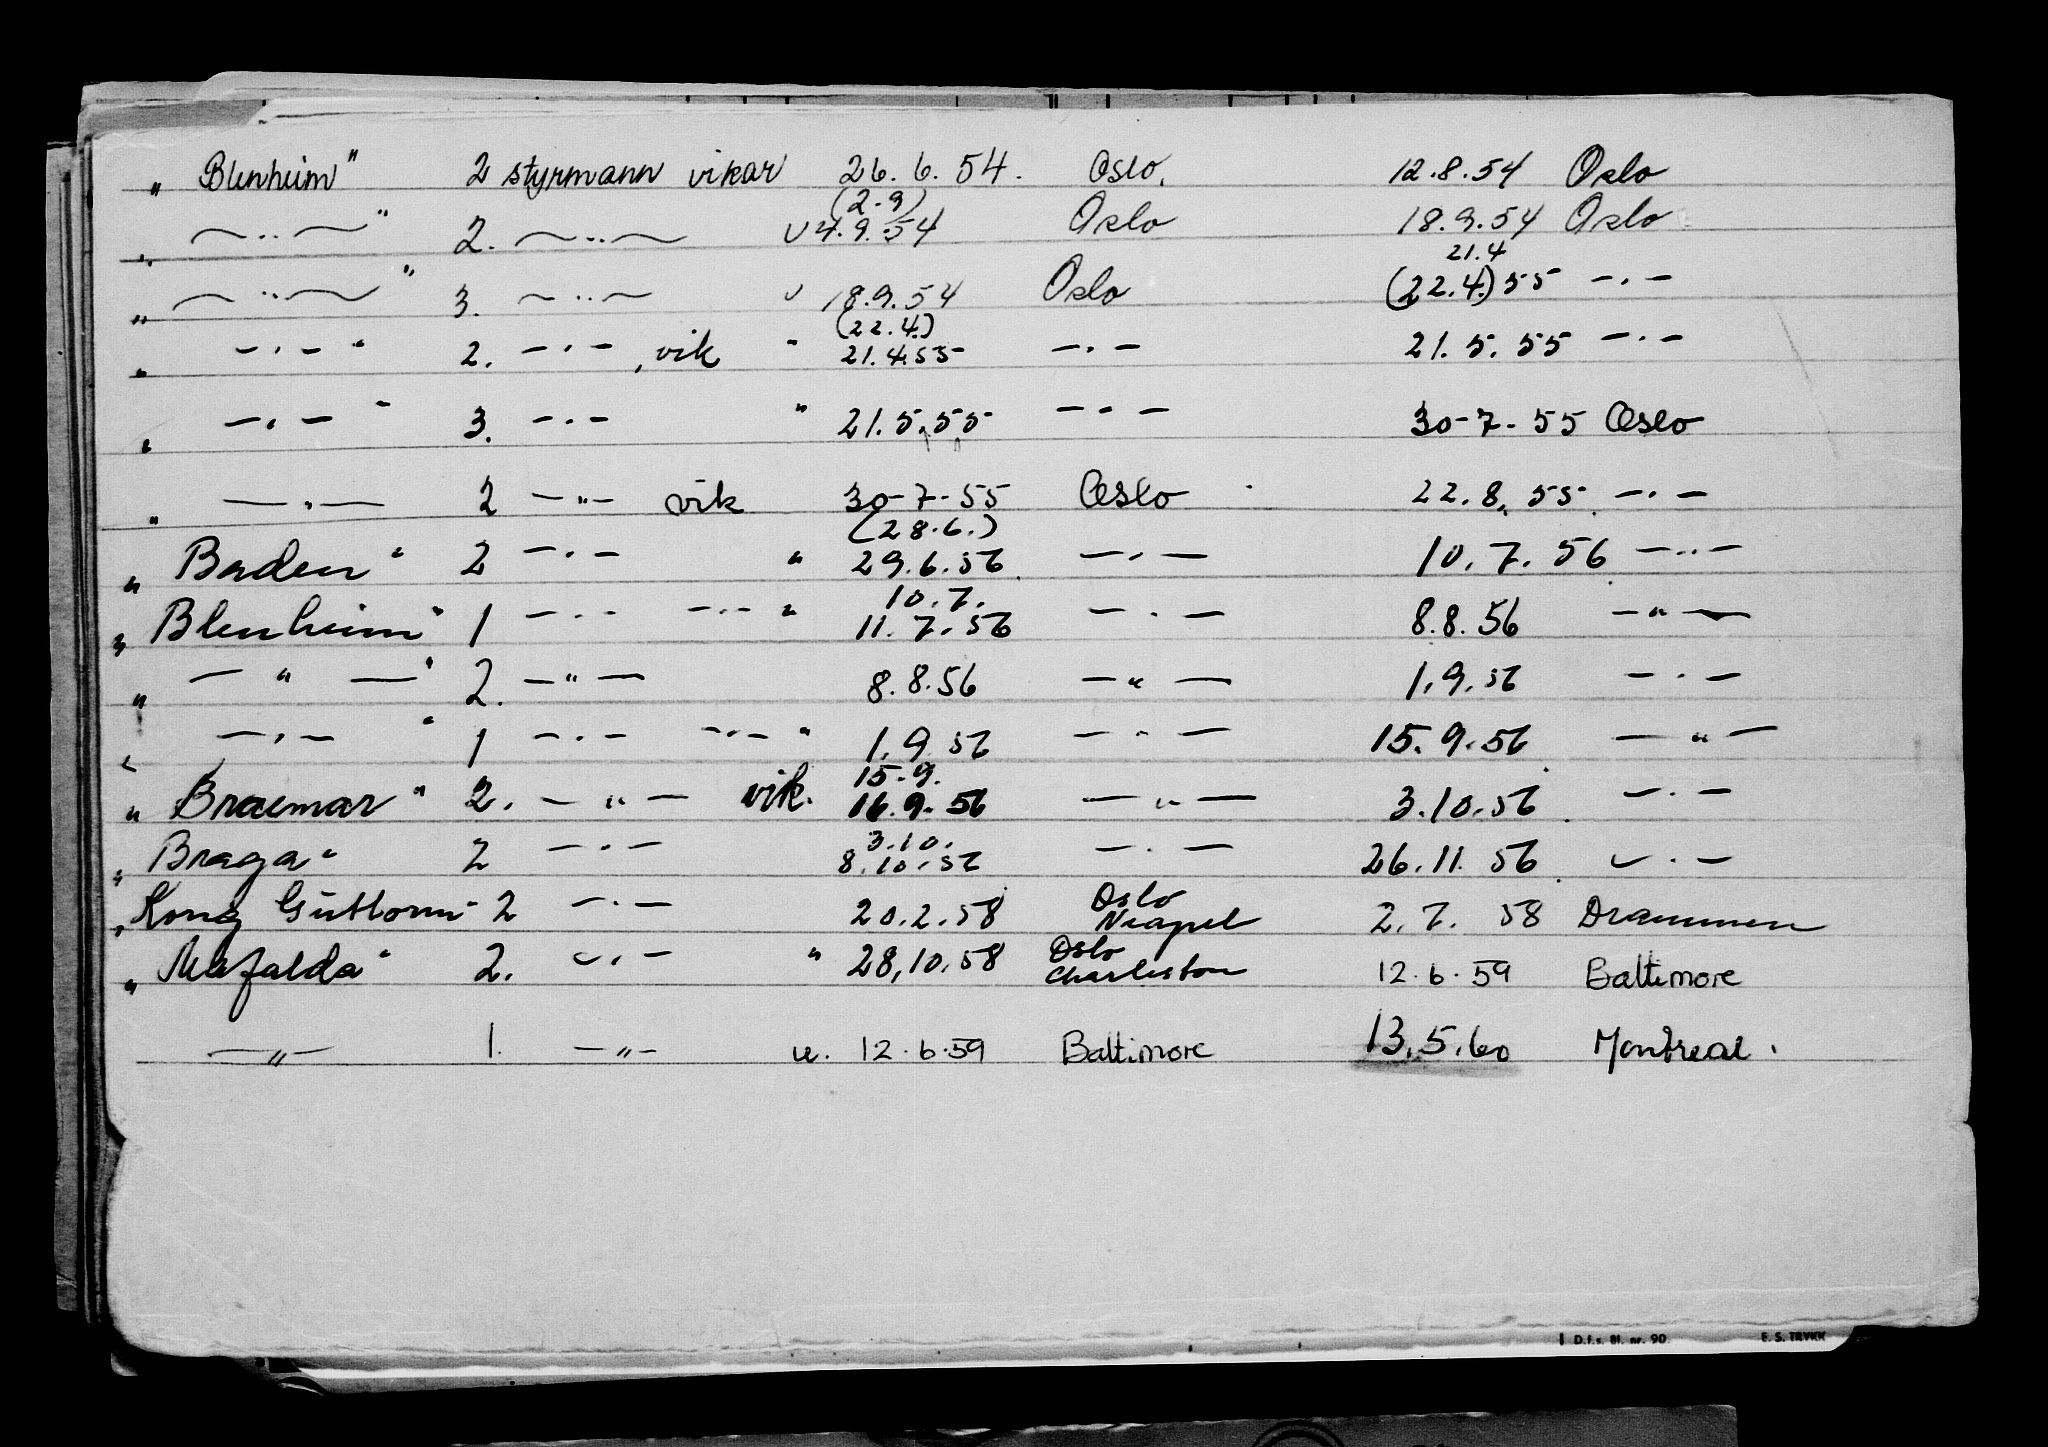 „ Blenheim" 2 styrmann vikar 26.6.54. Oslo. 12.8.54 Oslo
(2.9)
„ —〃—" 2. —〃— u 4.9.54 Oslo 18.9.54 Oslo
21.4
„ —〃—" 3. —〃— u 18.9.54 Oslo (22.4.) 55 —〃—
(22.4.)
„ —〃—" 2. —〃—, vik " 21.4.55 —〃— 21.5.55 —〃—
„ —〃—" 3. —〃— " 21.5.55 —〃— 30-7-55 Oslo
„ —〃— 2 —〃— vik 30-7-55 Oslo 22.8.55 —〃—
(28.6.)
„ Baden" 2 —〃— " 29.6.56 —〃— 10.7.56 —〃—
10.7.
„ Blenheim" 1 —〃— —〃— " 11.7.56 —〃— 8.8.56 —〃—
„ —〃—" 2. —〃— 8.8.56 —〃— 1.9.56 —〃—
„ —〃—" 1 —〃— —〃— " 1.9.56 —〃— 15.9.56 —〃—
15.9.
„ Braemar" 2. —〃— vik. 16.9.56 —〃— 3.10.56 —〃—
3.10.
„ Braga" 2 —〃— 8.10.56 —〃— 26.11.56 —〃—
Oslo
„ Kong Guttorm" 2 —〃— 20.2.58 Neapel 2.7.58 Drammen
Oslo
„ Mafalda" 2. —〃— " 28.10.58 Charleston 12.6.59 Baltimore
—〃— 1. —〃— u. 12.6.59 Baltimore 13.5.60 Montreal.
D.f.s. Bl. nr. 90 E. S. TRYKK